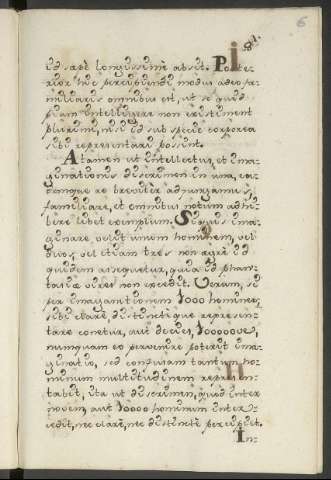 6
id sæpe longissimè absit. Poste-
rior hic percipiendi modus adeo fa-
miliaris omnibus est, ut se quid-
piam intelligere non existiment
plurimi, nisi id sub specie corporea
sibi repræsentari possint.
Attamen ut intellectus, et ima-
ginationis discrimen in una, ea-
demque re breviter adjungamus,
familiare, et omnibus notum adhi-
bere libet exemplum. Siquis ima-
ginare velit unum hominem, vel
duos, vel etiam tres non ægrè id
quidem assequetur, quia id phan-
tasiæ vires non excedit. Verum, si
per imaginationem 1000 homines
sibi clarè, distinctèque repræsen-
tare conetur, aut decies, 1000000es,
nunquam eo pervenire poterit ima-
ginatio, sed confusam tantum ho-
minum multitudinem repræsen-
tabit, ita ut discrimen, quod inter
novem, aut 10000 hominum inter-
cedit, nec clarè, nec distinctè percipiet.
In-